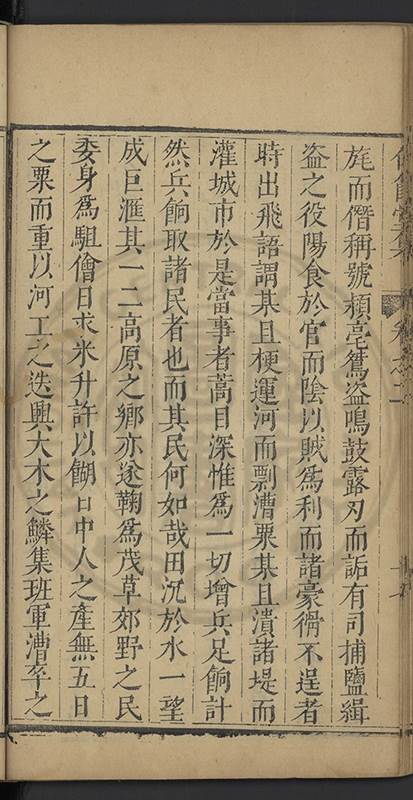 旄而僭稱號頛亳鴛盗鳴鼓露刃而詬有司捕鹽緝
盗之役陽食於官而陰以賊爲利而諸豪猾不逞者
時出飛語謂某且梗運河而剽漕粟某且潰諸堤而
灌城市於是當事者蒿目深惟爲一切增兵足餉計
然兵餉取諸民者也而其民何如哉田沉於水一望
成巨滙其一二高原之鄉亦遂鞠爲茂草郊野之民
委身爲駔儈日求米升許以餬口中人之產無五日
之粟而重以河工之迭興大木之鱗集班軍漕卒之
卷之二